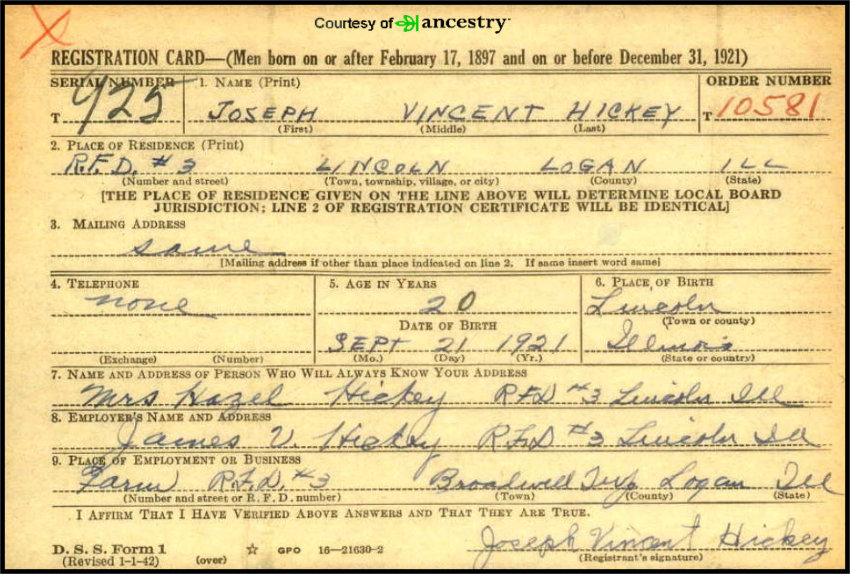 Courtesy of ancestry
REGISTRATION CARD—(Men born on or after February 17, 1897 and on or before December 31, 1921)
SERIAL NUMBER 1. NAME (Print) ORDER NUMBER
T 925 JOSEPH VINCENT HICKEY T 10581
(First) (Middle) (Last)
2. PLACE OF RESIDENCE (Print)
R.F.D. #3 LINCOLN LOGAN ILL
(Number and street) (Town, township, village, or city) (County) (State)
[THE PLACE OF RESIDENCE GIVEN ON THE LINE ABOVE WILL DETERMINE LOCAL BOARD
JURISDICTION; LINE 2 OF REGISTRATION CERTIFICATE WILL BE IDENTICAL]
3. MAILING ADDRESS
same
[Mailing address if other than place indicated on line 2. If same insert word same]
4. TELEPHONE 5. AGE IN YEARS 6. PLACE OF BIRTH
none 20 Lincoln
(Town or county)
DATE OF BIRTH
SEPT 21 1921 Illinois
(Exchange) (Number) (Mo.) (Day) (Yr.) (State or country)
7. NAME AND ADDRESS OF PERSON WHO WILL ALWAYS KNOW YOUR ADDRESS
Mrs Hazel Hickey RFD #3 Lincoln Ill
8. EMPLOYER'S NAME AND ADDRESS
James V. Hickey RFD #3 Lincoln Ill
9. PLACE OF EMPLOYMENT OR BUSINESS
Farm R.F.D. #3 Broadwell Twp Logan Ill
(Number and street or R. F. D. number) (Town) (County) (State)
I AFFIRM THAT I HAVE VERIFIED ABOVE ANSWERS AND THAT THEY ARE TRUE.
D. S. S. Form 1 GPO 16—21630-2 Joseph Vincent Hickey
(Revised 1-1-42) (over) (Registrant's signature)